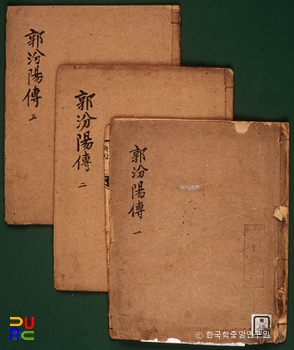 郭汾陽傳 三
郭汾陽傳 二
郭汾陽傳 一
© 한국학중앙연구원